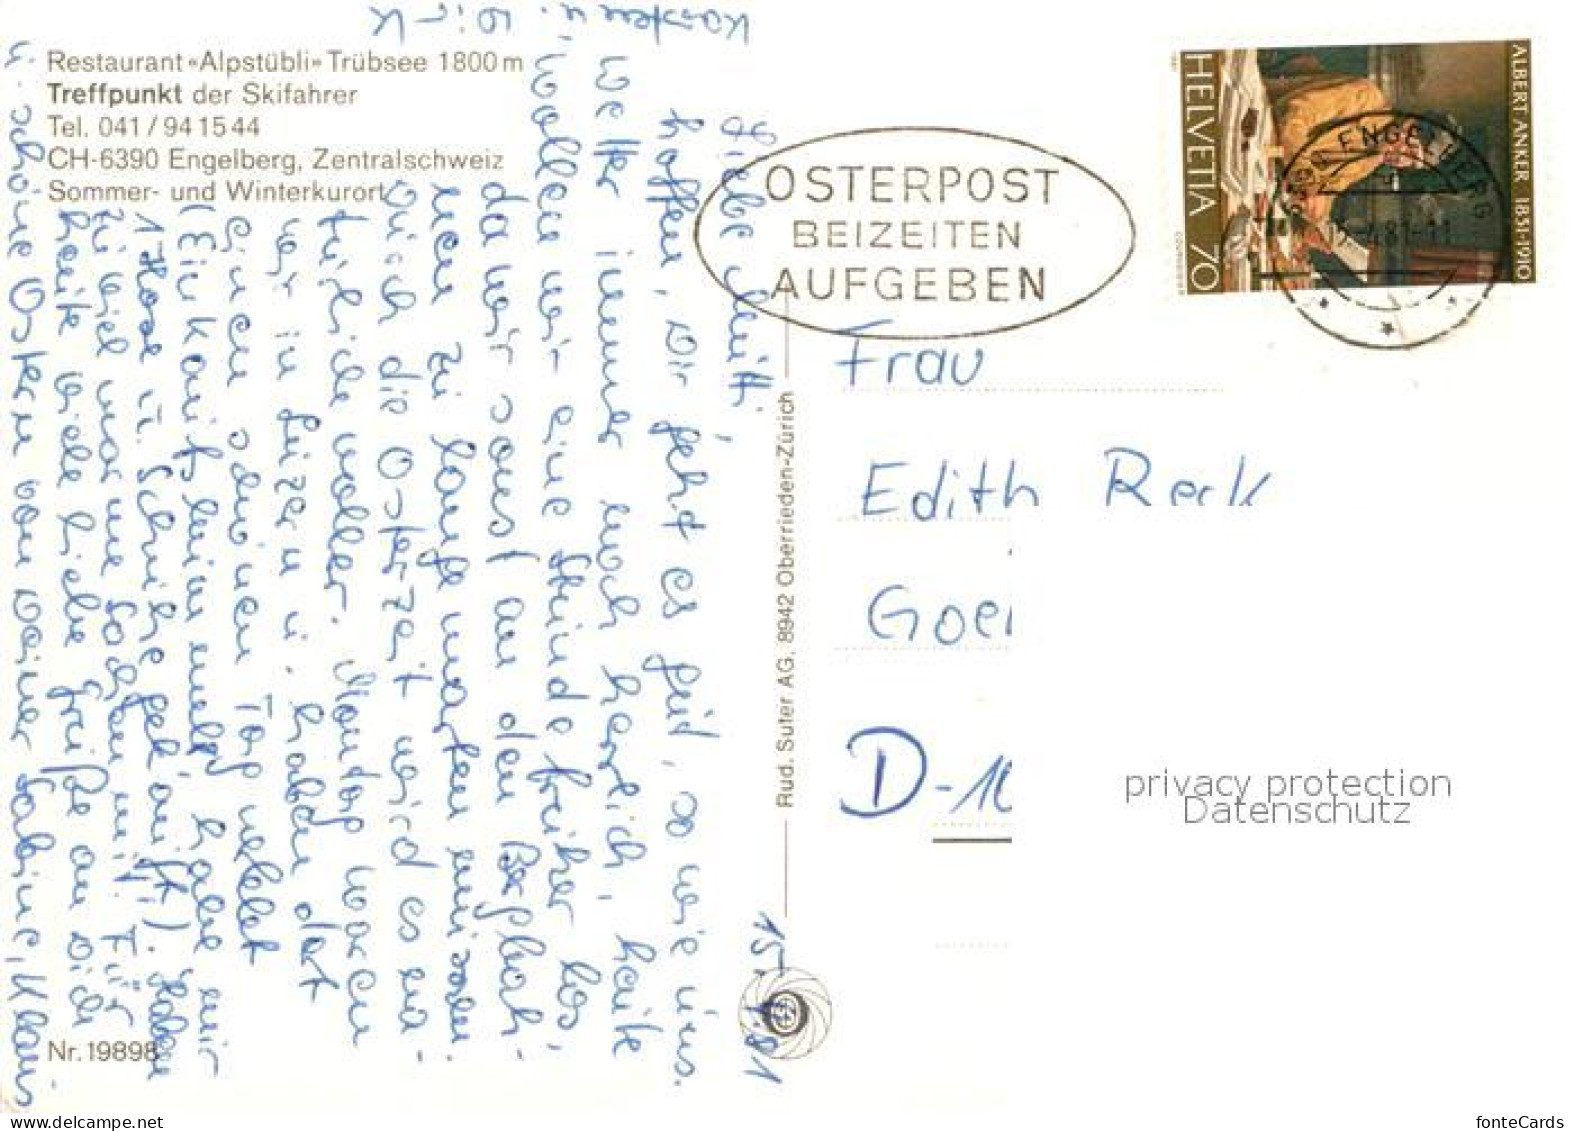 Restaurant «Alpstübli» Trübsee 1800 m
Treffpunkt der Skifahrer
Tel. 041 / 94 15 44
CH-6390 Engelberg, Zentralschweiz
Sommer- und Winterkurort
15. 4. 81
Liebe Mutti,
hoffen, Dir geht es gut, so wie uns.
Wetter immer noch herrlich, heute
wollen wir eine Stunde früher los,
da wir sonst an den Bergbah-
nen zu lange warten müssen.
Durch die Osterzeit wird es na-
türlich voller. Montag waren
wir in Luzern u. haben dort
einen schönen Tag verlebt
(Einkaufsbummel, habe mir
1 Hose u. Schuhe gekauft). Haben
zuviel warme Sachen mit! Für
heute viele liebe Grüße an Dich
u. schöne Ostern von Deiner Sabine, Klaus
Karsten u. Dirk
Nr. 19898
Rud. Suter AG, 8942 Oberrieden-Zürich
OSTERPOST
BEIZEITEN
AUFGEBEN
HELVETIA 70
ALBERT ANKER 1831-1910
COURVOISIER
6390 ENGELBERG
Frau
Edith Reck
Goe
D-10
privacy protection
Datenschutz
fonteCards